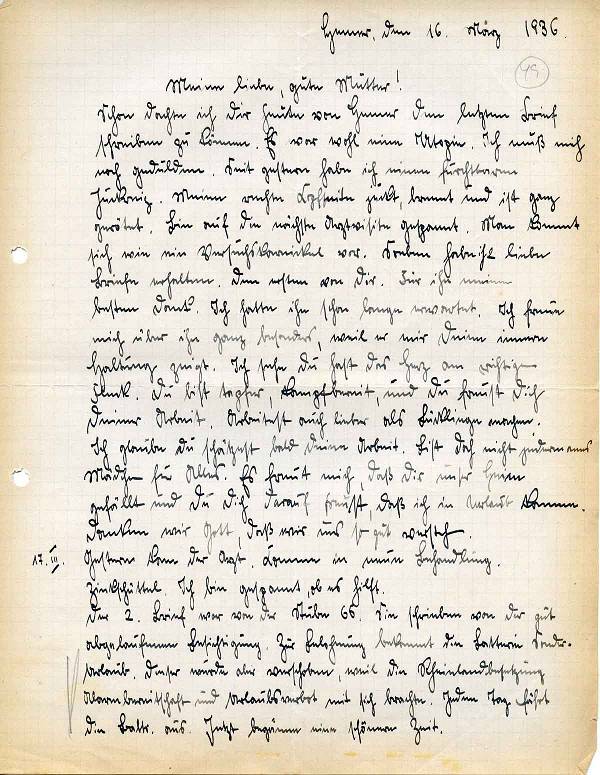 Hemer, den 16. März 1936.
49
Meine liebe, gute Mutter!
Schon dachte ich Dir heute von Hemer den letzten Brief
schreiben zu können. Es war wohl eine Utopie. Ich muß mich
noch gedulden. Seit gestern habe ich einen furchtbaren
Juckreiz. Meine rechte Kopfseite juckt, brennt und ist ganz
gerötet. Bin auf die nächste Arztvisite gespannt. Man kommt
sich wie ein Versuchskarnickel vor. Soeben habe ich 2 liebe
Briefe erhalten. Den ersten von Dir. Für ihn meinen
besten Dank. Ich hatte ihn schon lange erwartet. Ich freue
mich über ihn ganz besonders, weil er mir Deine innere
Haltung zeigt. Ich sehe Du hast das Herz am richtigen
Fleck. Du bist tapfer, kampfbereit, und Du freust Dich
Deiner Arbeit. Arbeitest auch lieber als Bücklinge machen.
Ich glaube Du schätzest bald Deine Arbeit. Bist doch nicht jedermanns
Mädchen für Alles. Es freut mich, daß Dir unser Heim
gefällt und Du Dich darauf freust, daß ich in Urlaub komme.
Danken wir Gott, daß wir uns so gut verstehn.
17. III. Gestern kam der Arzt. Komme in neue Behandlung.
Zinkschüttel. Ich bin gespannt, ob es hilft.
Der 2. Brief war von der Stube 66. Sie schrieben von der gut
abgelaufenen Besichtigung. Zur Belohnung bekommt die Batterie Sonder-
urlaub. Dieser wurde aber verschoben, weil die Rheinlandbesetzung
Alarmbereitschaft und Urlaubsverbot mit sich brachte. Jeden Tag fährt
die Battr. aus. Jetzt begänne eine schönere Zeit.